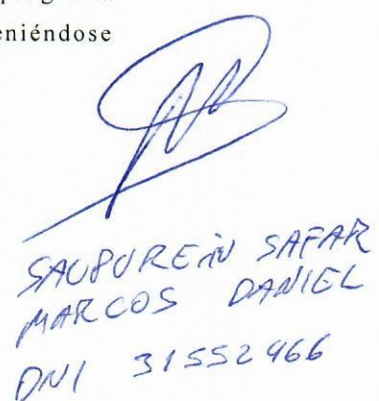 eniéndose
SAUBUREIN SAFAR
MARCOS DANIEL
DNI 31552966